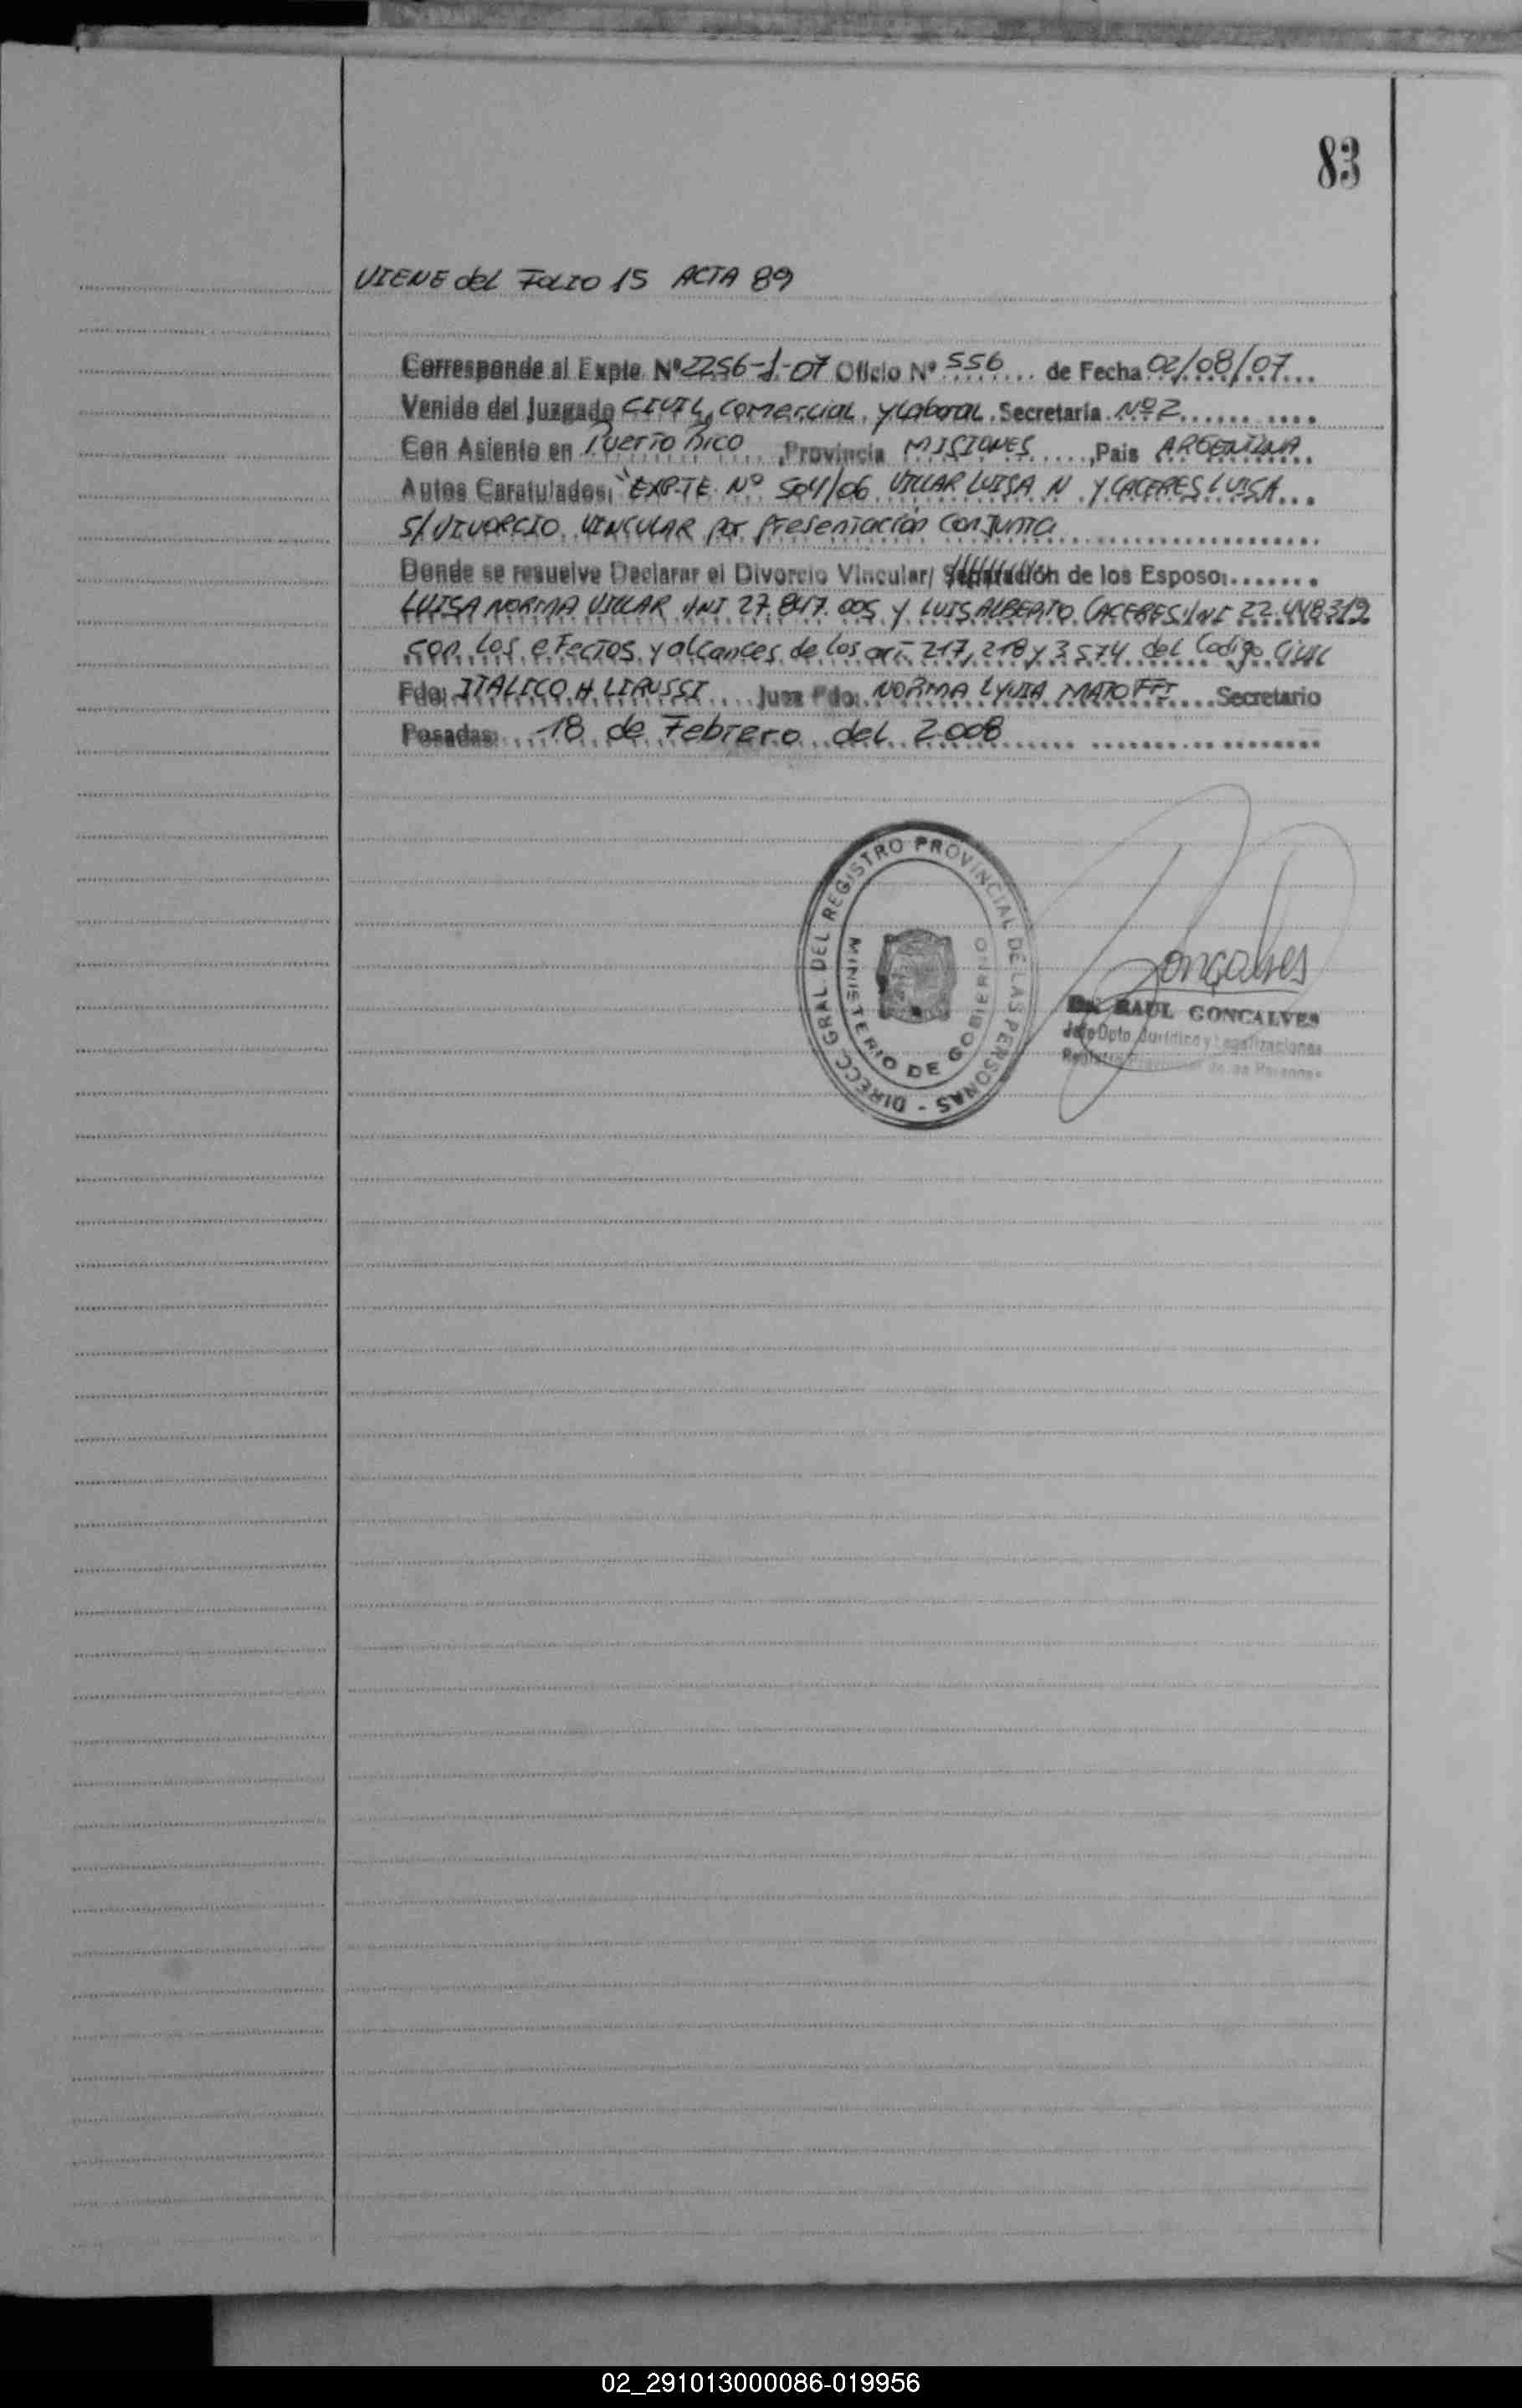 83
VIENE del FOLIO 15 ACTA 89
Corresponde al Expte. Nº 2256-J-07 Oficio Nº 556 ... de Fecha 02/08/07 ...
Venido del Juzgado CIVIL, Comercial, y Laboral. Secretaría Nº 2 ..........
Con Asiento en Puerto Rico ...., Provincia MISIONES ....., Pais ARGENTINA.
Autos Caratulados: "EXPTE. Nº 504/06 VILLAR LUISA N Y CACERES LUIS A...
S/ DIVORCIO VINCULAR por Presentación Conjunta ....................
Donde se resuelve Declarar el Divorcio Vincular/ Separación de los Esposo: .......
LUISA NORMA VILLAR DNI 27.847.005 Y LUIS ALBERTO CACERES DNI 22.448.312
con los efectos y alcances de los art. 217, 218 y 3574 del Codigo Civil
Fdo: ITALICO H. LIRUSSI .... Juez Fdo: NORMA LYDIA MATOFFI .... Secretario
Posadas: ... 18 de Febrero del 2008 ..... ....................
DIRECC. GRAL. DEL REGISTRO PROVINCIAL DE LAS PERSONAS -
MINISTERIO DE GOBIERNO
Gonçalves
Dr. RAUL GONCALVES
Jefe Dpto. Jurídico y Legalizaciones
Registro Provincial de las Personas
02_291013000086-019956